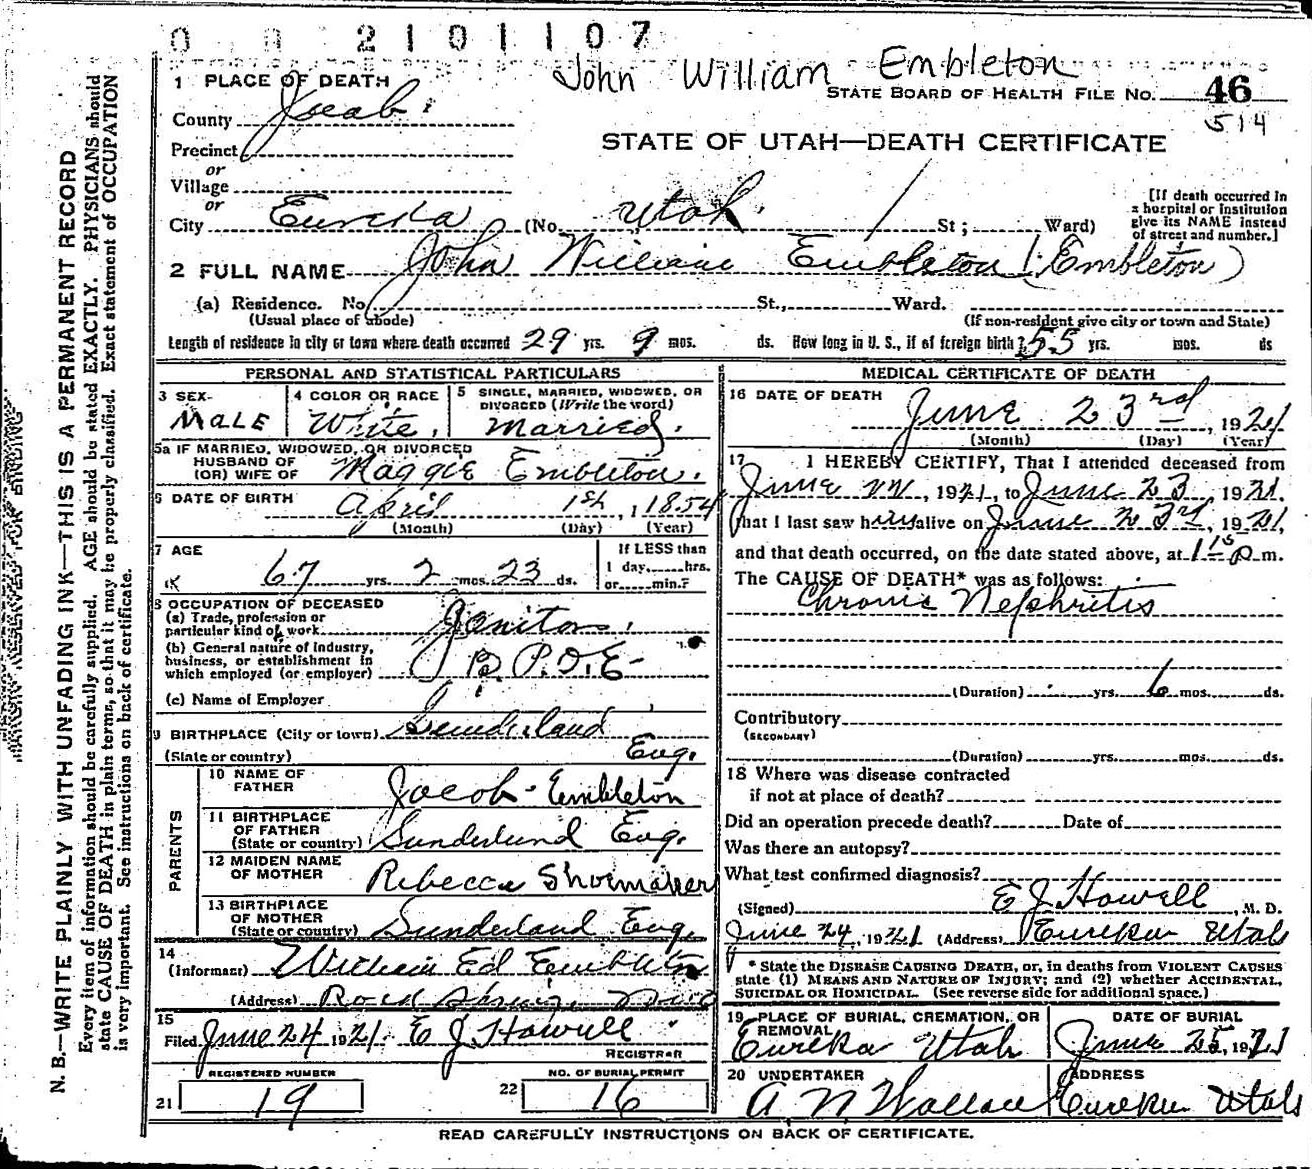 0 0 2101107
John William Embleton
1 PLACE OF DEATH
STATE BOARD OF HEALTH FILE No. 46
County Juab
514
Precinct
STATE OF UTAH—DEATH CERTIFICATE
or
Village
or
City Eureka (No. Utah. St; Ward)
[If death occurred in
a hospital or institution
give its NAME instead
of street and number.]
2 FULL NAME John William Embleton (Embleton)
(a) Residence. No. St., Ward.
(Usual place of abode)
(If non-resident give city or town and State)
Length of residence in city or town where death occurred 29 yrs. 9 mos. ds. How long in U. S., if of foreign birth? 55 yrs. mos. ds
PERSONAL AND STATISTICAL PARTICULARS
3 SEX
MALE
4 COLOR OR RACE
White.
5 SINGLE, MARRIED, WIDOWED, OR
DIVORCED (Write the word)
Married.
5a IF MARRIED, WIDOWED, OR DIVORCED
HUSBAND OF
(OR) WIFE OF Maggie Embleton.
6 DATE OF BIRTH April 1st, 1854
(Month) (Day) (Year)
7 AGE
67 yrs. 2 mos. 23 ds.
If LESS than
1 day, hrs.
or min.?
8 OCCUPATION OF DECEASED
(a) Trade, profession or
particular kind of work Janitor.
(b) General nature of Industry,
business, or establishment in
which employed (or employer) B. P. O. E
(c) Name of Employer
9 BIRTHPLACE (City or town) Sunderland
(State or country) Eng.
PARENTS
10 NAME OF
FATHER Jacob Embleton
11 BIRTHPLACE
OF FATHER
(State or country) Sunderlund Eng.
12 MAIDEN NAME
OF MOTHER Rebecca Shoemaker
13 BIRTHPLACE
OF MOTHER
(State or country) Sunderland Eng.
14
(Informant) William Ed Embleton
(Address) Rock Springs
15
Filed June 24 1921. E J Howell
REGISTRAR
REGISTERED NUMBER
21 19
NO. OF BURIAL PERMIT
22 16
MEDICAL CERTIFICATE OF DEATH
16 DATE OF DEATH
June 23rd, 1921
(Month) (Day) (Year)
17 I HEREBY CERTIFY, That I attended deceased from
June, 1921, to June 23, 1921.
that I last saw him alive on June 23rd, 1921,
and that death occurred, on the date stated above, at 1 15 p.m.
The CAUSE OF DEATH* was as follows:
Chronic Nephritis
(Duration) yrs. 6 mos. ds.
Contributory
(SECONDARY)
(Duration) yrs. mos. ds.
18 Where was disease contracted
if not at place of death?
Did an operation precede death? Date of
Was there an autopsy?
What test confirmed diagnosis?
(Signed) E J Howell, M. D.
June 24, 1921 (Address) Eureka Utah
* State the DISEASE CAUSING DEATH, or, in deaths from VIOLENT CAUSES
state (1) MEANS AND NATURE OF INJURY; and (2) whether ACCIDENTAL,
SUICIDAL OR HOMICIDAL. (See reverse side for additional space.)
19 PLACE OF BURIAL, CREMATION, OR
REMOVAL
Eureka Utah
DATE OF BURIAL
June 25, 1921
20 UNDERTAKER
A N Wallace
ADDRESS
Eureka Utah
READ CAREFULLY INSTRUCTIONS ON BACK OF CERTIFICATE.
N. B.—WRITE PLAINLY WITH UNFADING INK—THIS IS A PERMANENT RECORD
Every item of information should be carefully supplied. AGE should be stated EXACTLY. PHYSICIANS should
state CAUSE OF DEATH in plain terms, so that it may be properly classified. Exact statement of OCCUPATION
is very important. See instructions on back of certificate.